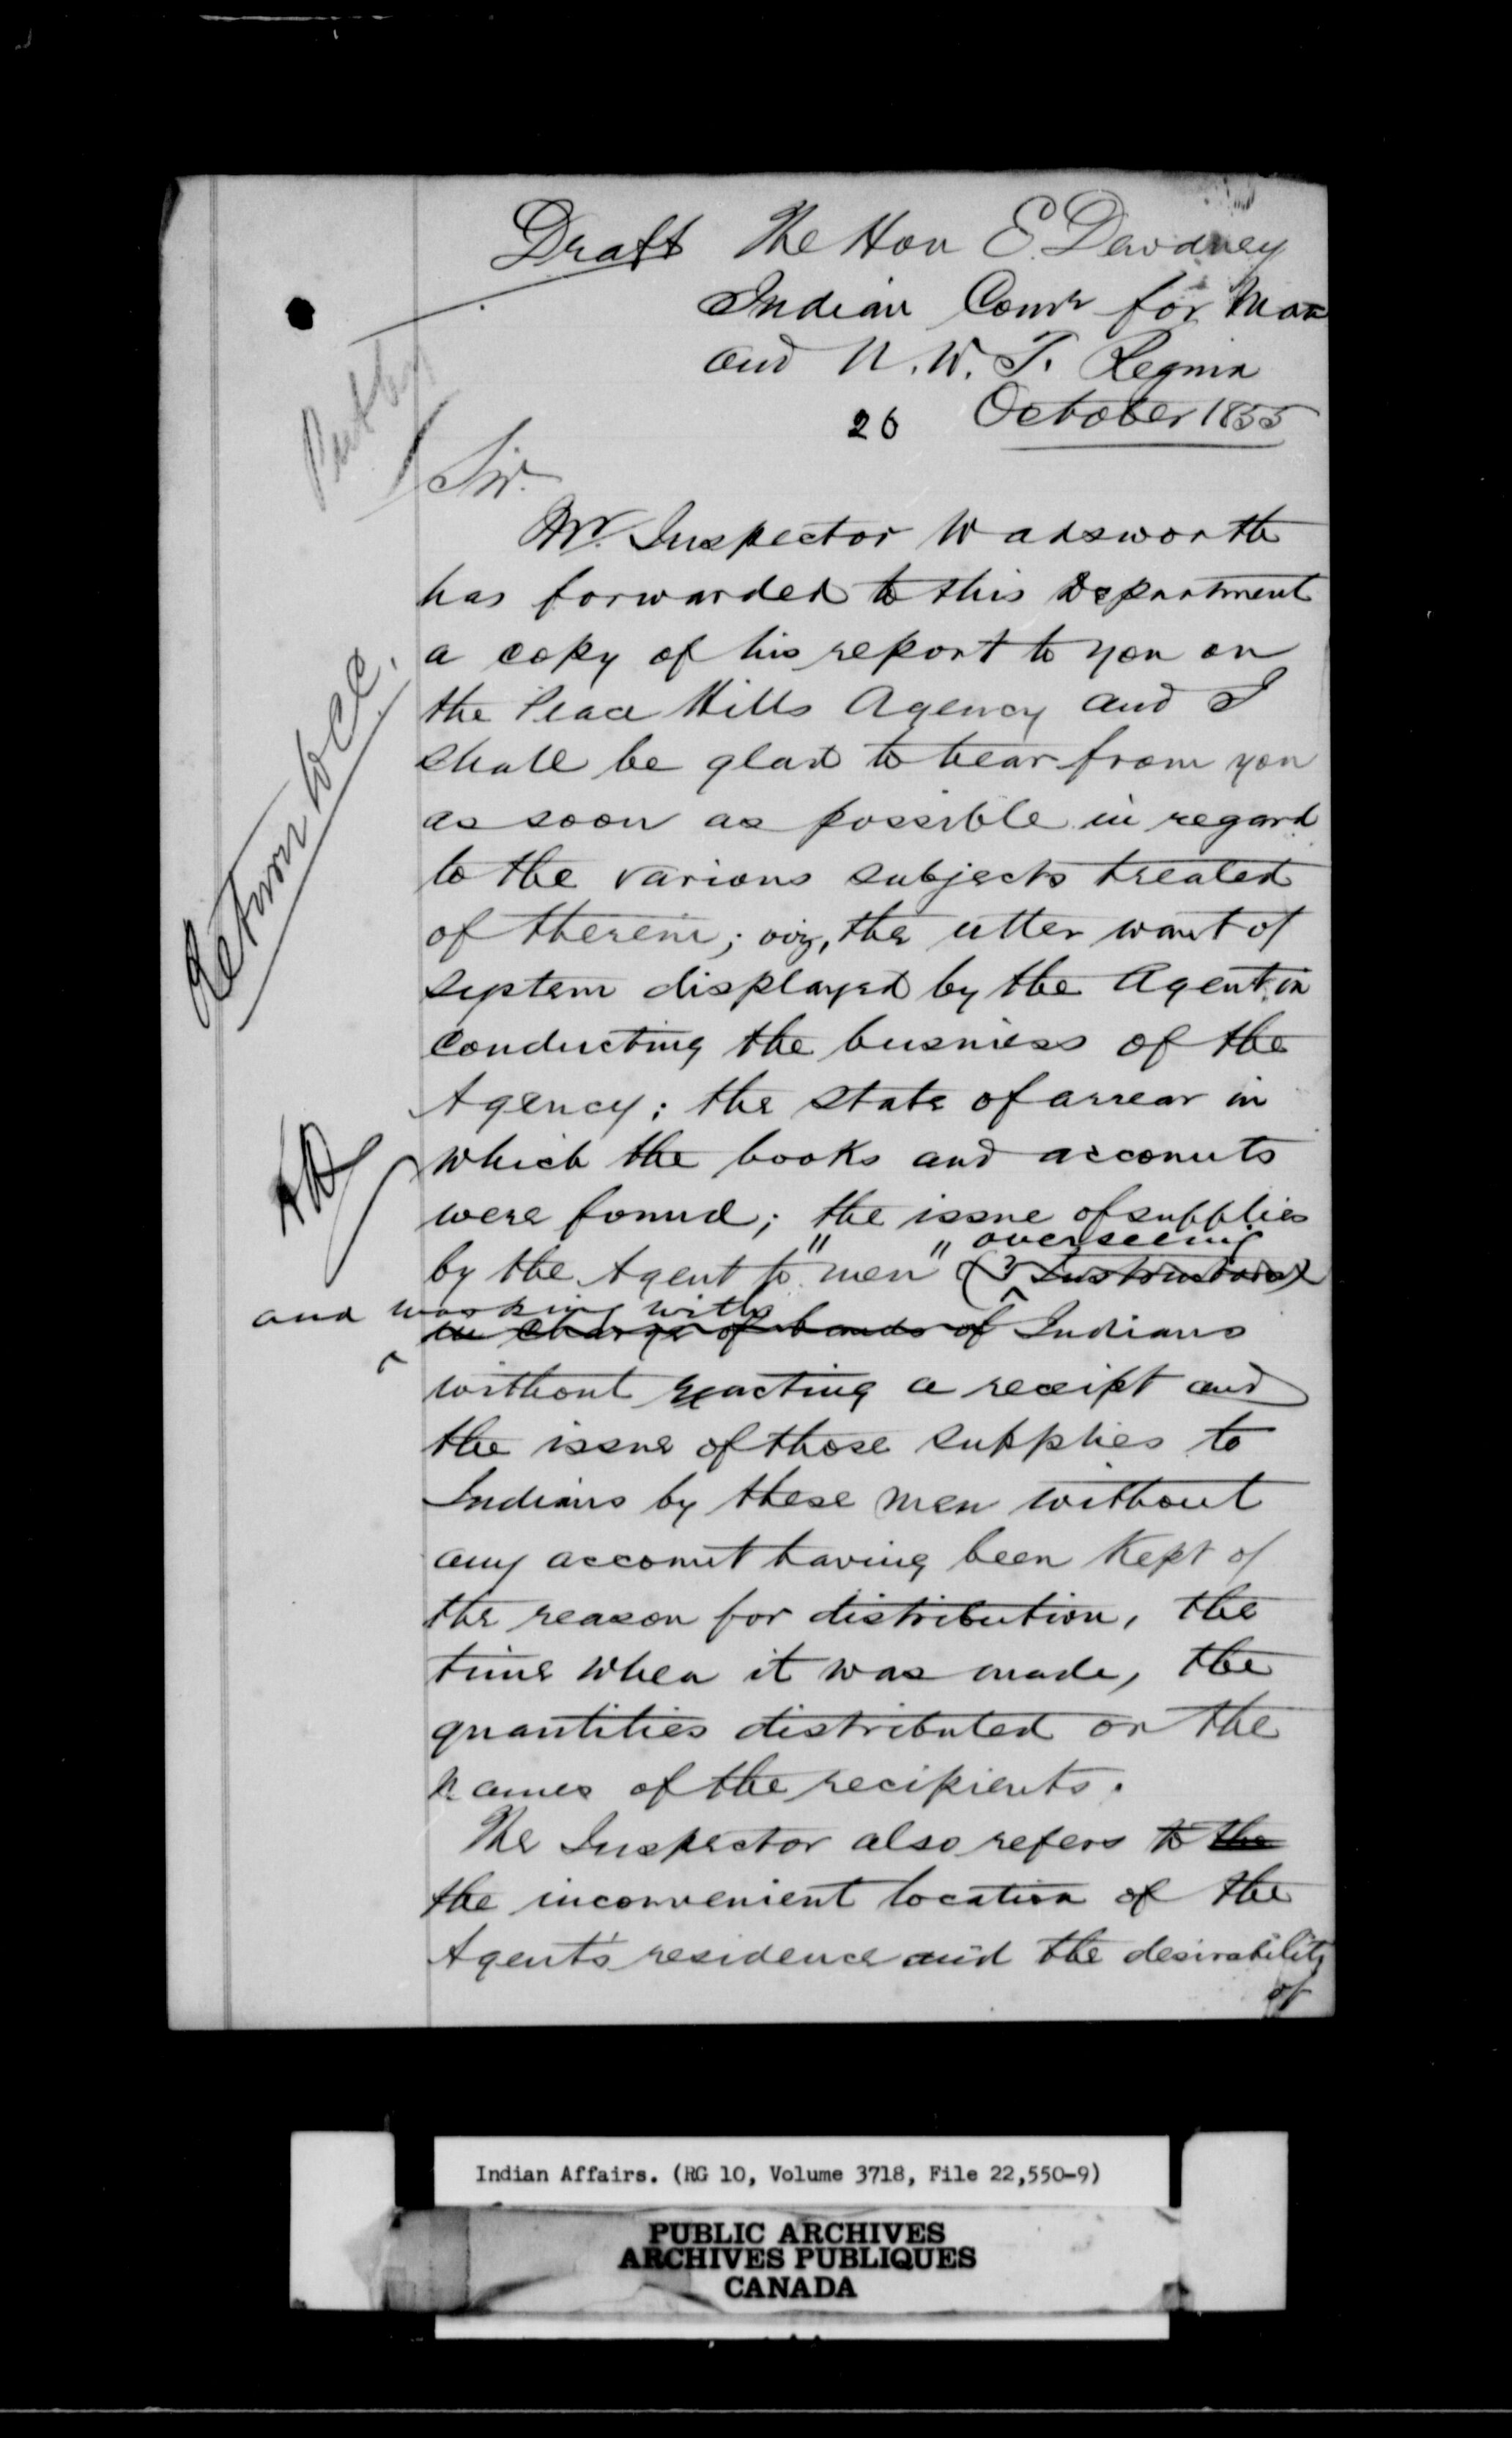 Draft The Hon E. Dewdney
Indian Comr for Man
and N. W. T. Regina
26 October 1885
Put by
Sir.
Mr. Inspector Wadsworth
has forwarded to this Department
a copy of his report to you on
the Peace Hills Agency and I
shall be glad to hear from you
as soon as possible in regard
to the various subjects treated
of therein; viz, the utter want of
system displayed by the Agent in
conducting the business of the
Agency; the state of arrear in
which the books and accounts
were found; the issue of supplies
overseeing
by the Agent to "men" (? Instructors)
and working with
in charge of bands of Indians
without exacting a receipt and
the issue of those supplies to
Indians by these men without
any account having been kept of
the reason for distribution, the
time when it was made, the
quantities distributed or the
names of the recipients.
The Inspector also refers to the
the inconvenient location of the
Agent's residence and the desirability
of
Return to
Indian Affairs. (RG 10, Volume 3718, File 22,550-9)
PUBLIC ARCHIVES
ARCHIVES PUBLIQUES
CANADA